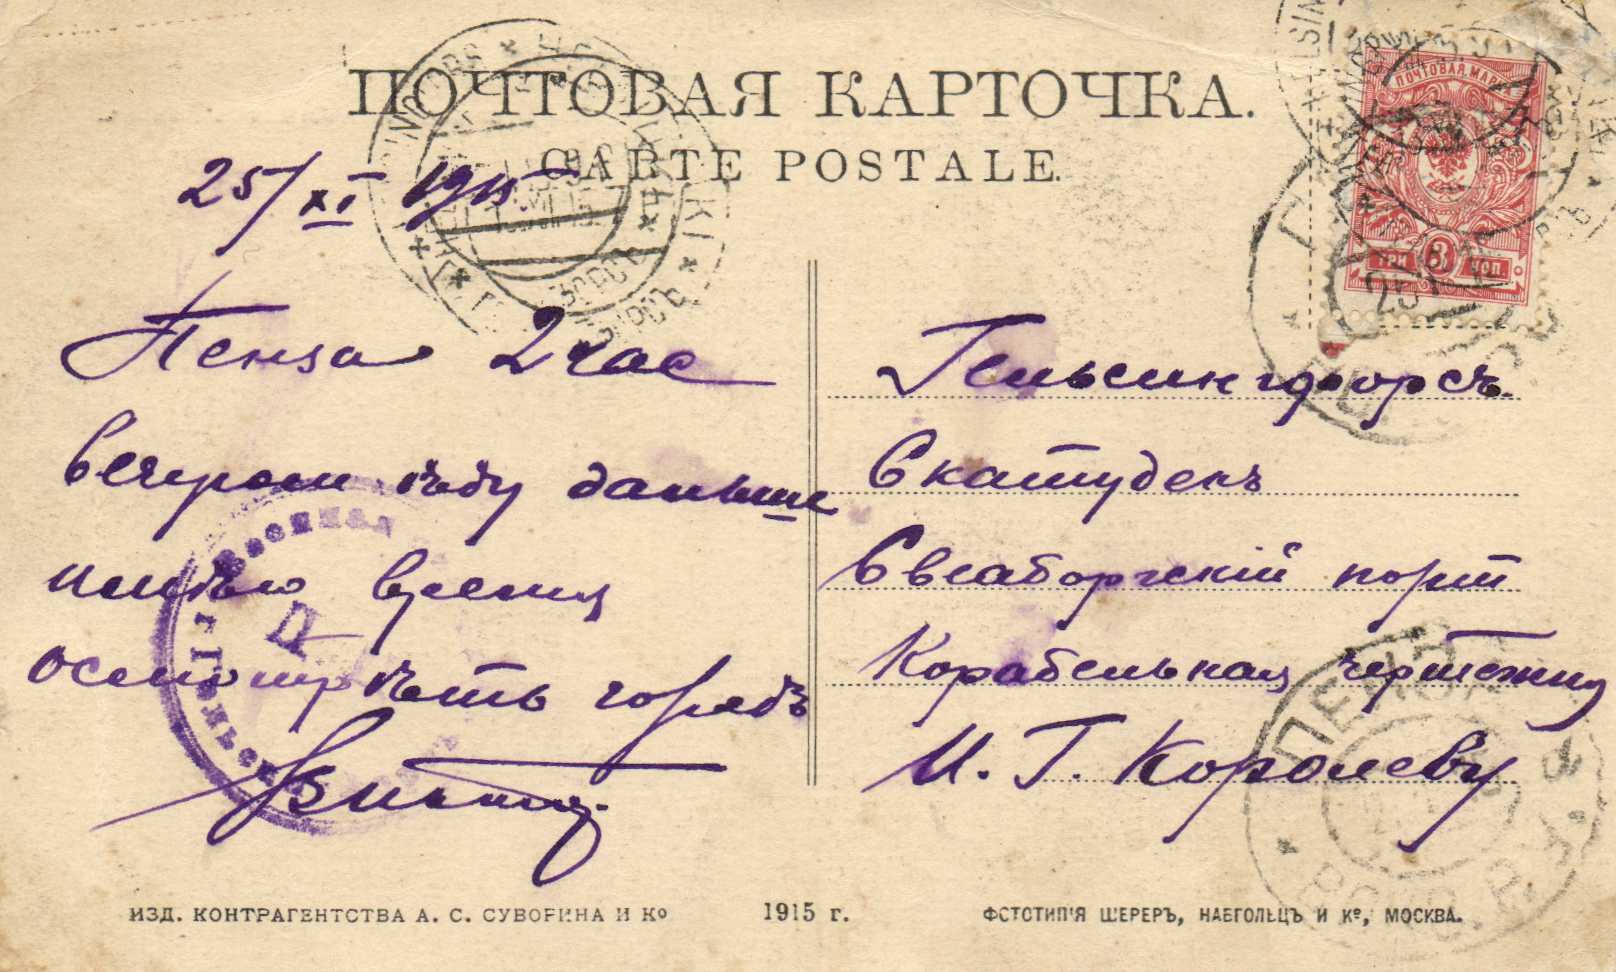 ПОЧТОВАЯ КАРТОЧКА.
CARTE POSTALE.
25/XI 1915
Пенза 2 час
вечером ѣду дальше
имѣю время
осмотрѣть городъ
ПОЧТОВАЯ МАРКА
3
ТРИ КОП.
Гельсингфорсъ
Скатуденъ
Свеаборгскій портъ
Корабельная чертежная
И. Г. Королеву
HELSINKI
ПЕНЗА
ИЗД. КОНТРАГЕНТСТВА А. С. СУВОРИНА И Ко
1915 г.
ФОТОТИПІЯ ШЕРЕРЪ, НАБГОЛЬЦЪ И Ко, МОСКВА.